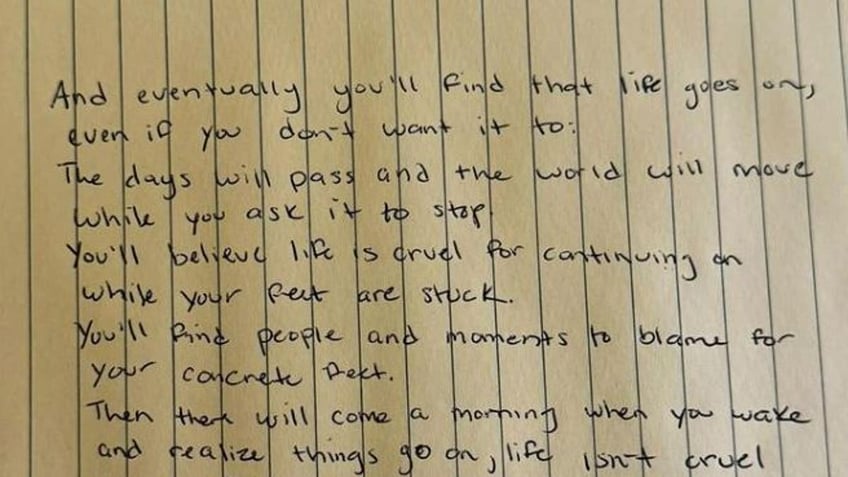 And eventually you'll find that life goes on,
even if you don't want it to:
The days will pass and the world will move
while you ask it to stop.
You'll believe life is cruel for continuing on
while your feet are stuck.
You'll find people and moments to blame for
your concrete feet.
Then there will come a morning when you wake
and realize things go on, life isn't cruel